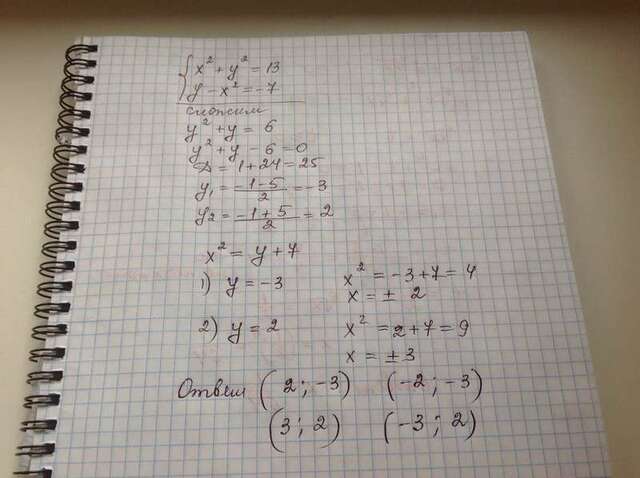 { x² + y² = 13
y - x² = -7
сложим
y² + y = 6
y² + y - 6 = 0
D = 1 + 24 = 25
y₁ = (-1-5)/2 = -3
y₂ = (-1+5)/2 = 2
x² = y + 7
1) y = -3 x² = -3+7 = 4
x = ± 2
2) y = 2 x² = 2+7 = 9
x = ±3
Ответ (2; -3) (-2; -3)
(3; 2) (-3; 2)